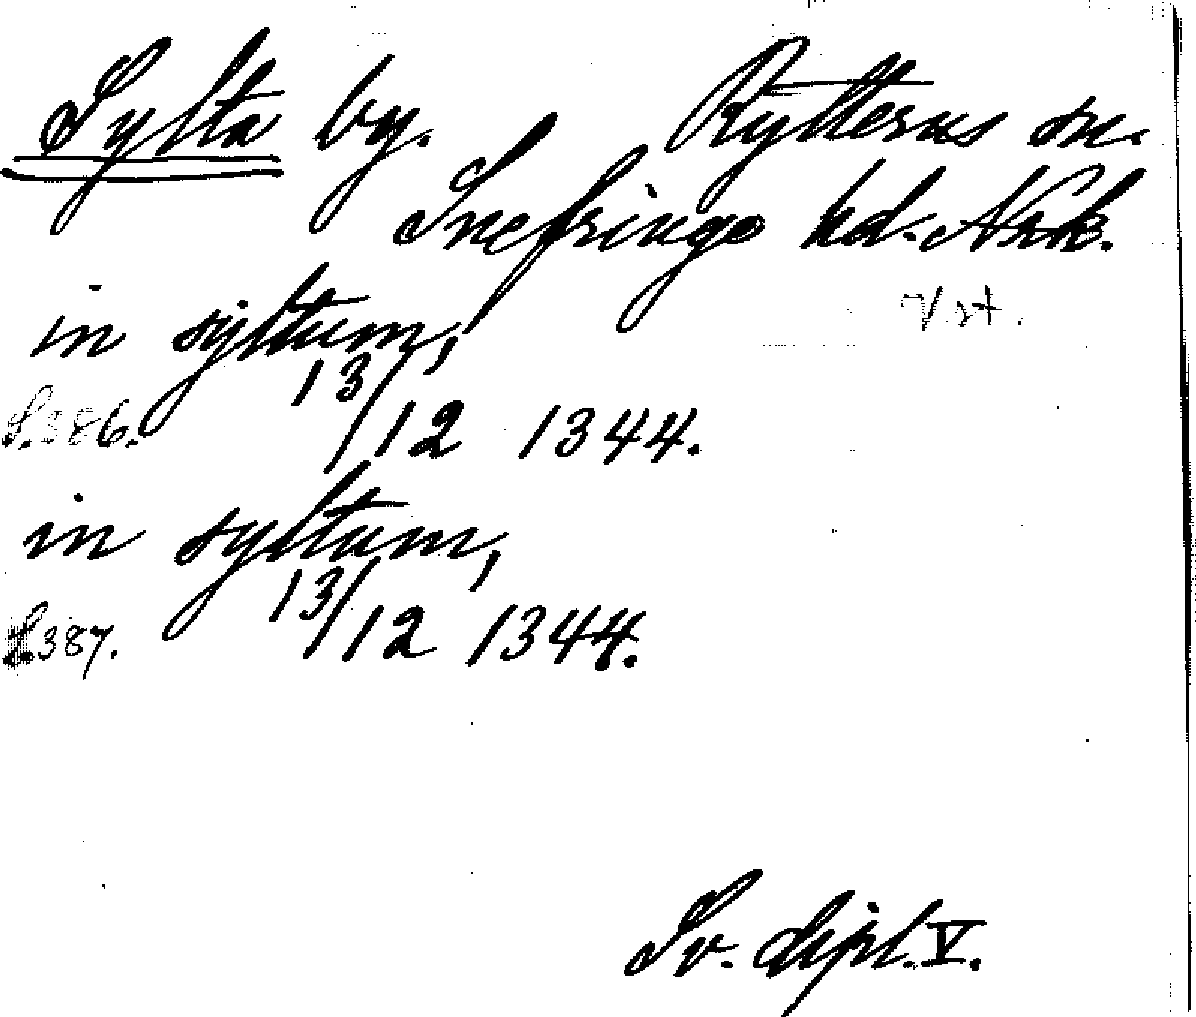 Sylta by. Rytterns sn.
Snefringe hd. Nrk.
Vst.
in syltum,
13/12 1344.
S. 386.
in syltum,
13/12 1344.
S. 387.
Sv. dipl. V.